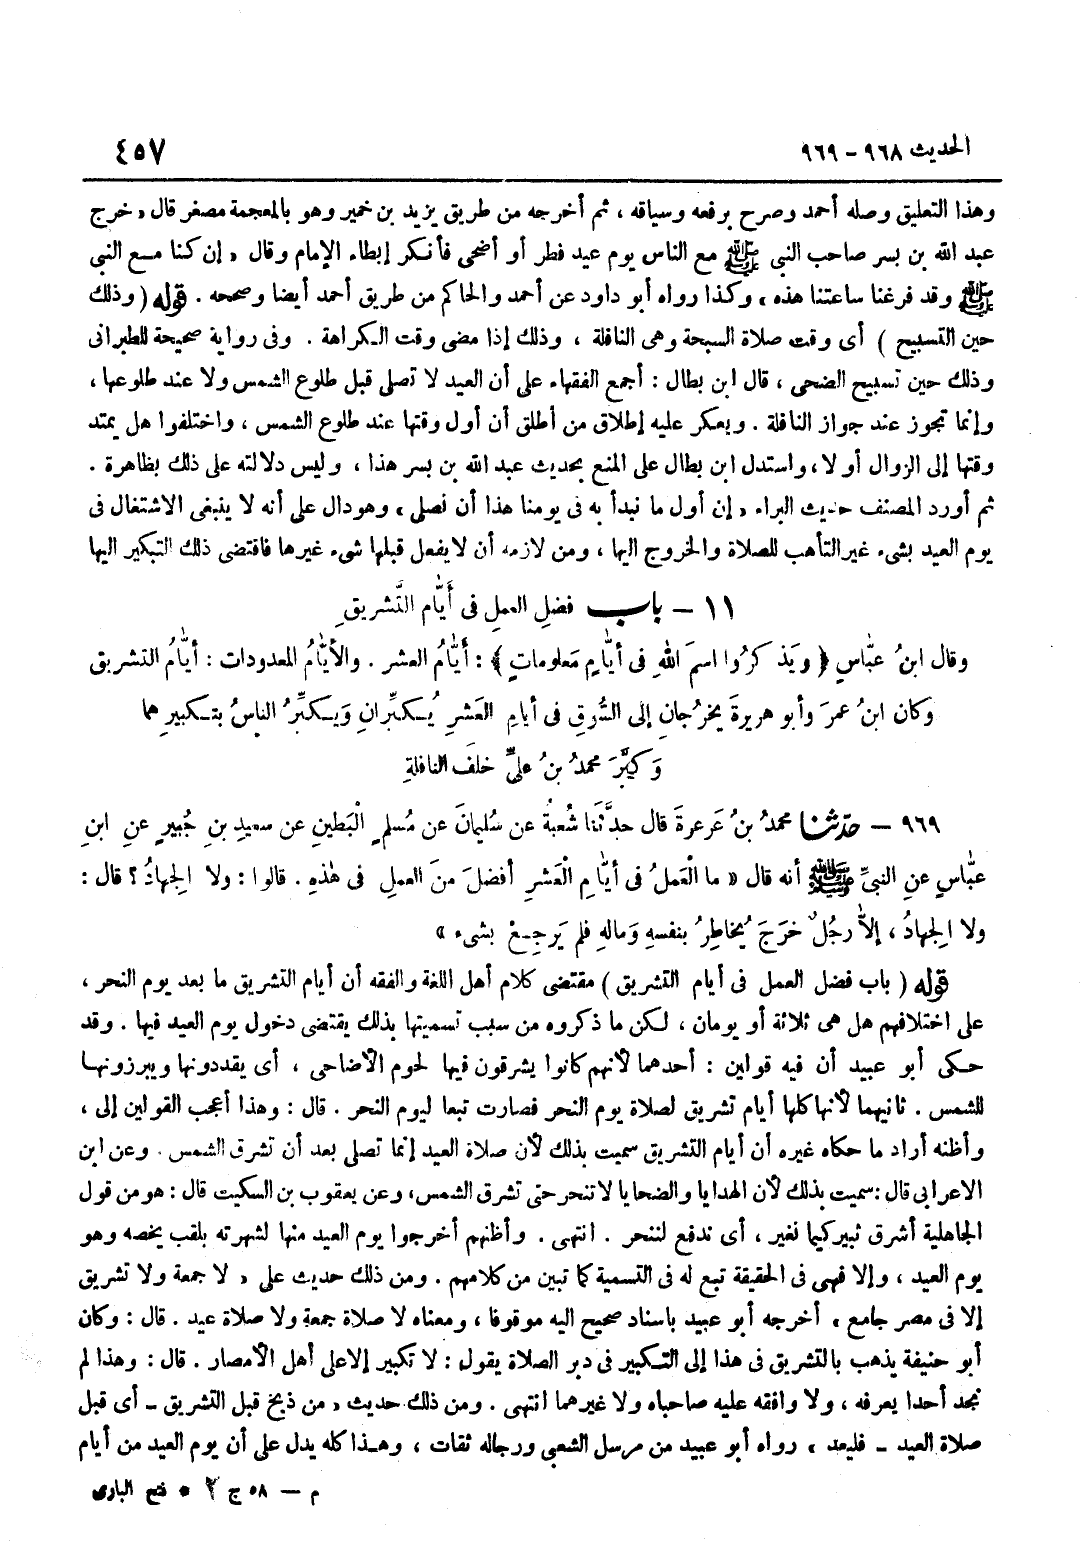 الحديث ٩٦٨ - ٩٦٩
٤٥٧
وهذا التعليق وصله أحمد وصرح برفعه وسياقه ، ثم أخرجه من طريق يزيد بن خمير وهو بالمعجمة مصغر قال « خرج
عبد الله بن بسر صاحب النبي ﷺ مع الناس يوم عيد فطر أو أضحى فأنكر إبطاء الإمام وقال « إن كنا مع النبي
ﷺ وقد فرغنا ساعتنا هذه » وكذا رواه أبو داود عن أحمد والحاكم من طريق أحمد أيضا وصححه . قوله ( وذلك
حين التسبيح ) أى وقت صلاة السبحة وهى النافلة ، وذلك إذا مضى وقت الكراهة . وفى رواية صحيحة للطبرانى
وذلك حين تسبيح الضحى ، قال ابن بطال : أجمع الفقهاء على أن العيد لا تصلى قبل طلوع الشمس ولا عند طلوعها ،
وإنما تجوز عند جواز النافلة . ويعكر عليه إطلاق من أطلق أن أول وقتها عند طلوع الشمس ، واختلفوا هل يمتد
وقتها إلى الزوال أو لا ، واستدل ابن بطال على المنع بحديث عبد الله بن بسر هذا ، وليس دلالته على ذلك بظاهرة .
ثم أورد المصنف حديث البراء « إن أول ما نبدأ به فى يومنا هذا أن نصلى » وهو دال على أنه لا ينبغى الاشتغال فى
يوم العيد بشىء غير التأهب للصلاة والخروج اليها ، ومن لازمه أن لا يفعل قبلها شىء غيرها فاقتضى ذلك التبكير اليها
١١ - باب فضلِ العملِ فى أيّامِ التَّشريقِ
وقال ابنُ عبّاسٍ ﴿ ويَذكرُوا اسمَ اللهِ فى أيّامٍ مَعلوماتٍ ﴾ : أيّامُ العشر . والأيّامُ المعدودات : أيّامُ التشريق
وكان ابنُ عمرَ وأبو هريرةَ يخرُجانِ إلى السُّوقِ فى أيامِ العَشرِ يُكبِّرانِ وَيكبِّرُ الناسُ بتكبيرِهما
وَكبَّرَ محمدُ بنُ علىٍّ خلفَ النافلةِ
٩٦٩ - حدثنا محمدُ بنُ عَرعرةَ قال حدَّثَنا شُعبةُ عن سُليمانَ عن مُسلمٍ الْبَطينِ عن سعيدِ بنِ جُبيرٍ عنِ ابنِ
عبّاسٍ عنِ النبىِّ ﷺ أنه قال « ما الْعَملُ فى أيّامِ الْعَشرِ أفضلَ منَ العملِ فى هٰذهِ . قالوا : ولا الجِهادُ ؟ قال :
ولا الجِهادُ ، إلاّ رجُلٌ خرَجَ يُخاطِرُ بنفسهِ وَمالهِ فلم يَرجِعْ بشىء »
قوله ( باب فضل العمل فى أيام التشريق ) مقتضى كلام أهل اللغة والفقه أن أيام التشريق ما بعد يوم النحر ،
على اختلافهم هل هى ثلاثة أو يومان ، لكن ما ذكروه من سبب تسميتها بذلك يقتضى دخول يوم العيد فيها . وقد
حكى أبو عبيد أن فيه قولين : أحدهما لأنهم كانوا يشرقون فيها لحوم الأضاحى ، أى يقددونها ويبرزونها
للشمس . ثانيهما لأنها كلها أيام تشريق لصلاة يوم النحر فصارت تبعا ليوم النحر . قال : وهذا أعجب القولين إلى ،
وأظنه أراد ما حكاه غيره أن أيام التشريق سميت بذلك لأن صلاة العيد إنما تصلى بعد أن تشرق الشمس . وعن ابن
الاعرابى قال : سميت بذلك لأن الهدايا والضحايا لا تنحر حتى تشرق الشمس ، وعن يعقوب بن السكيت قال : هو من قول
الجاهلية أشرق ثبير كيما نغير ، أى ندفع لننحر . انتهى . وأظنهم أخرجوا يوم العيد منها لشهرته بلقب يخصه وهو
يوم العيد ، وإلا فهى فى الحقيقة تبع له فى التسمية كما تبين من كلامهم . ومن ذلك حديث على « لا جمعة ولا تشريق
إلا فى مصر جامع » أخرجه أبو عبيد باسناد صحيح اليه موقوفا ، ومعناه لا صلاة جمعة ولا صلاة عيد . قال : وكان
أبو حنيفة يذهب بالتشريق فى هذا إلى التكبير فى دبر الصلاة يقول : لا تكبير إلا على أهل الأمصار . قال : وهذا لم
نجد أحدا يعرفه ، ولا وافقه عليه صاحباه ولا غيرهما انتهى . ومن ذلك حديث « من ذبح قبل التشريق - أى قبل
صلاة العيد - فليعد » رواه أبو عبيد من مرسل الشعبى ورجاله ثقات ، وهذا كله يدل على أن يوم العيد من أيام
م - ٥٨ ج ٢ * فتح البارى